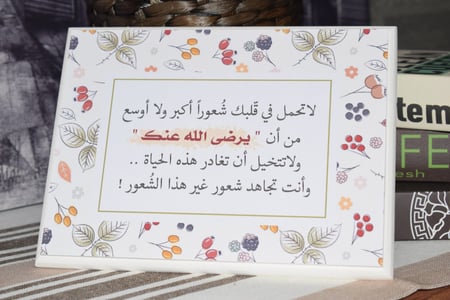 لا تحمل في قلبك شُعوراً أكبر ولا أوسع
من أن " يرضى الله عنك "
ولا تتخيل أن تغادر هذه الحياة ..
وأنت تجاهد شعور غير هذا الشُعور !
tem
FE
esh